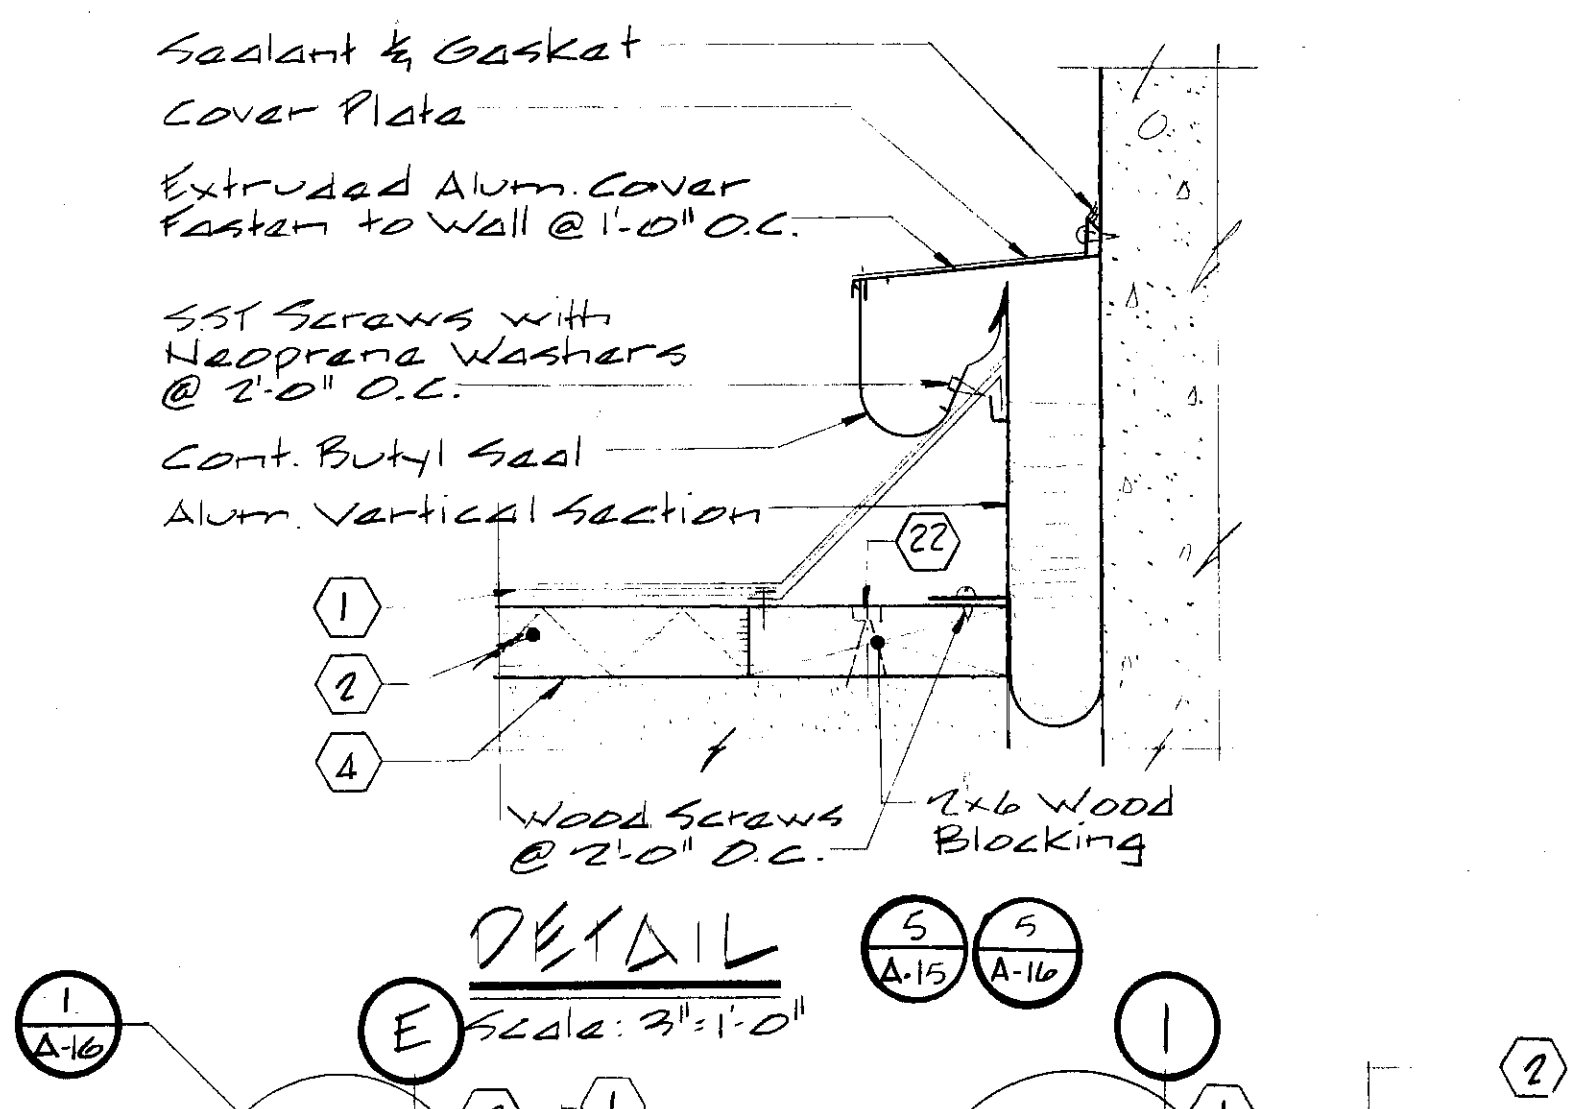 Sealant & Gasket
Cover Plate
Extruded Alum. Cover
Fasten to Wall @ 1'-0" O.C.
SST Screws with
Neoprene Washers
@ 2'-0" O.C.
Cont. Butyl Seal
Alum. Vertical Section
22
1
2
4
Wood Screws
@ 2'-0" O.C.
2x6 Wood
Blocking
DETAIL
Scale: 3"=1'-0"
5
A-15
5
A-16
1
A-16
E
1
2
1
1